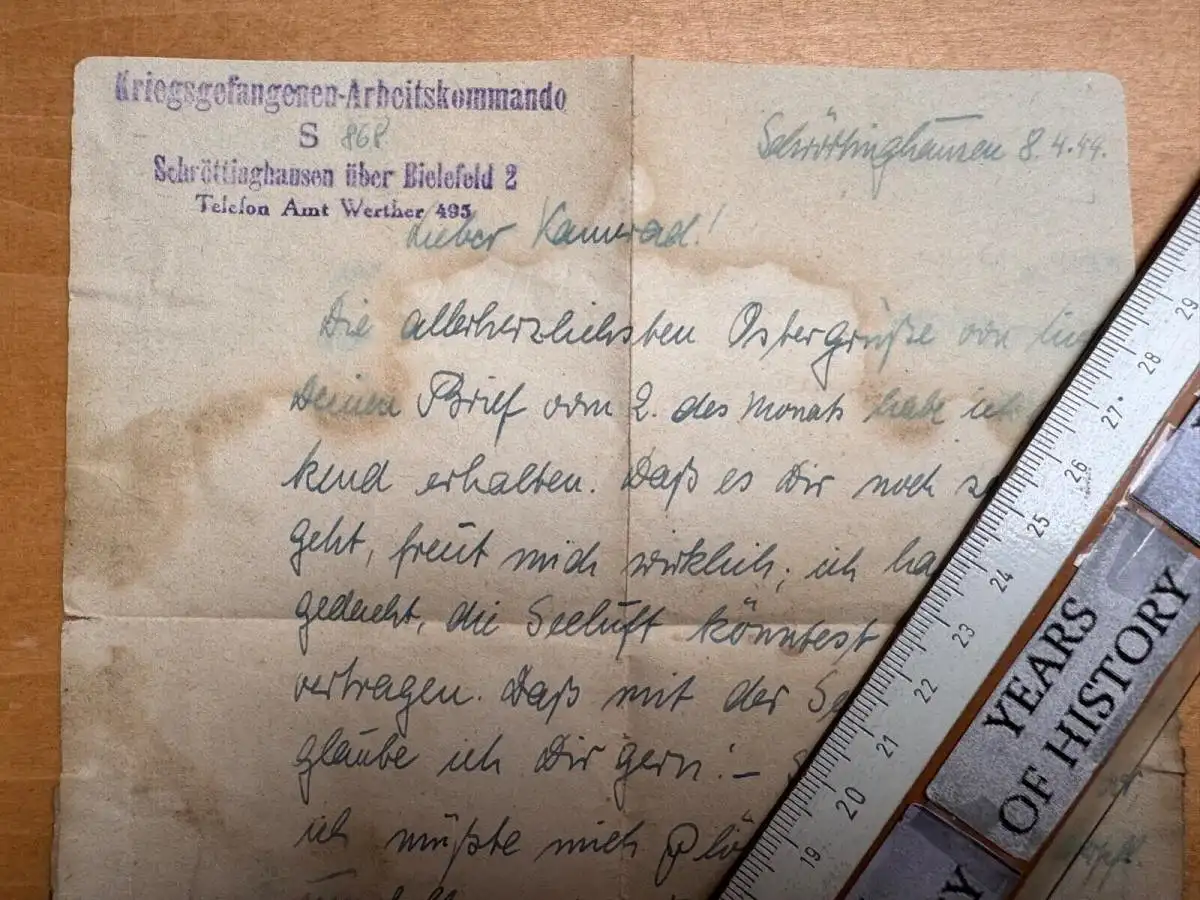 Kriegsgefangenen-Arbeitskommando
S 868
Schröttinghausen über Bielefeld 2
Telefon Amt Werther 495
Schröttinghausen 8.4.44.
Lieber Kamerad!
Die allerherzlichsten Ostergrüße von
Deinen Brief vom 2. des Monats habe ich
kend erhalten. Daß es Dir noch
geht, freut mich wirklich; ich
gedacht, die Seeluft könntest
vertragen. Daß mit der
glaube ich Dir gern! –
ich müßte mich
29
28
27
26
25
24
23
22
21
20
19
YEARS
OF HISTORY